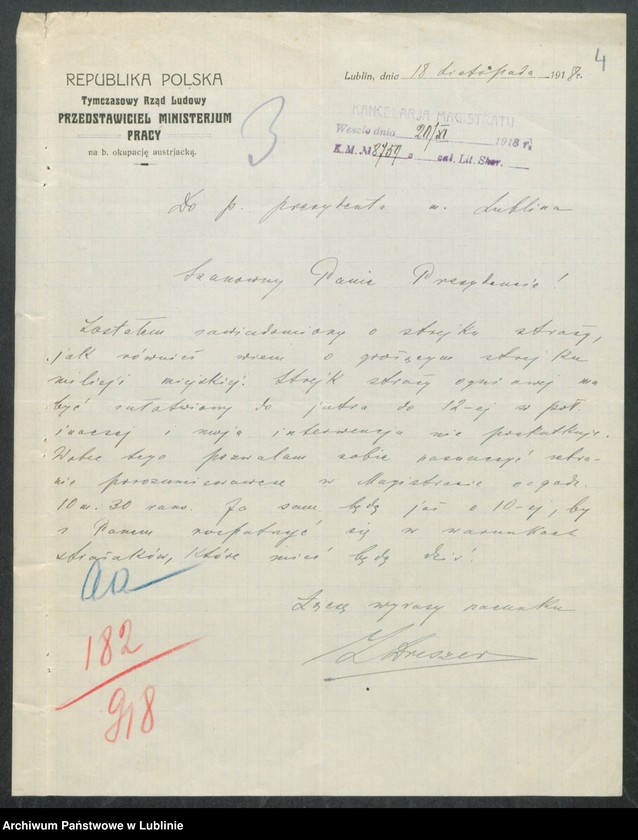 4
REPUBLIKA POLSKA
Tymczasowy Rząd Ludowy
PRZEDSTAWICIEL MINISTERJUM
PRACY
na b. okupację austrjacką.
Lublin, dnia 18 listopada 1918 r.
3
KANCELARJA MAGISTRATU
Weszło dnia 20/XI 1918 r.
K. M. № 8759 zał. Lit. Skor.
Do p. prezydenta m. Lublina
Szanowny Panie Prezydencie!
Zostałem zawiadomiony o strejku straży,
jak również wiem o grożącym strejku
milicji miejskiej. Strejk straży ogniowej ma
być załatwiony do jutra do 12-ej w poł.
inaczej i moja interwencja nie poskutkuje.
Wobec tego pozwalam sobie naznaczyć zebra-
nie porozumiewawcze w Magistracie o godz.
10 m. 30 rano. Ja sam będę już o 10-ej, by
z Panem rozpatrzyć się w warunkach
strażaków, które mieć będę dziś.
Łączę wyrazy szacunku
Z Dreszer
aa
182
918
Archiwum Państwowe w Lublinie